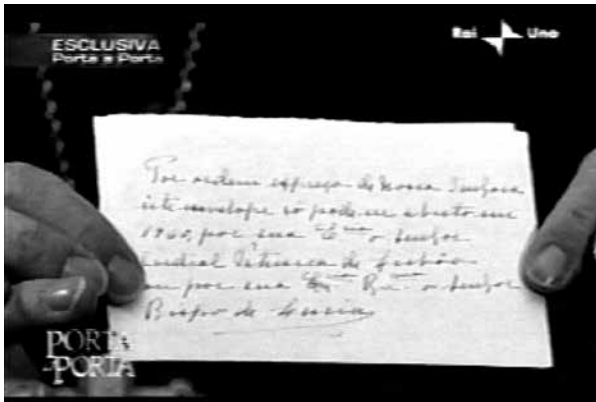 ESCLUSIVA
Porta a Porta
Rai Uno
Por ordem expreça de Nossa Senhora
este envelope só pode ser aberto em
1960, por sua Emcia o Senhor
Cardial Patriarca de Lisboa
ou por sua Excia Rcia o Senhor
Bispo de Leiria
PORTA
a PORTA